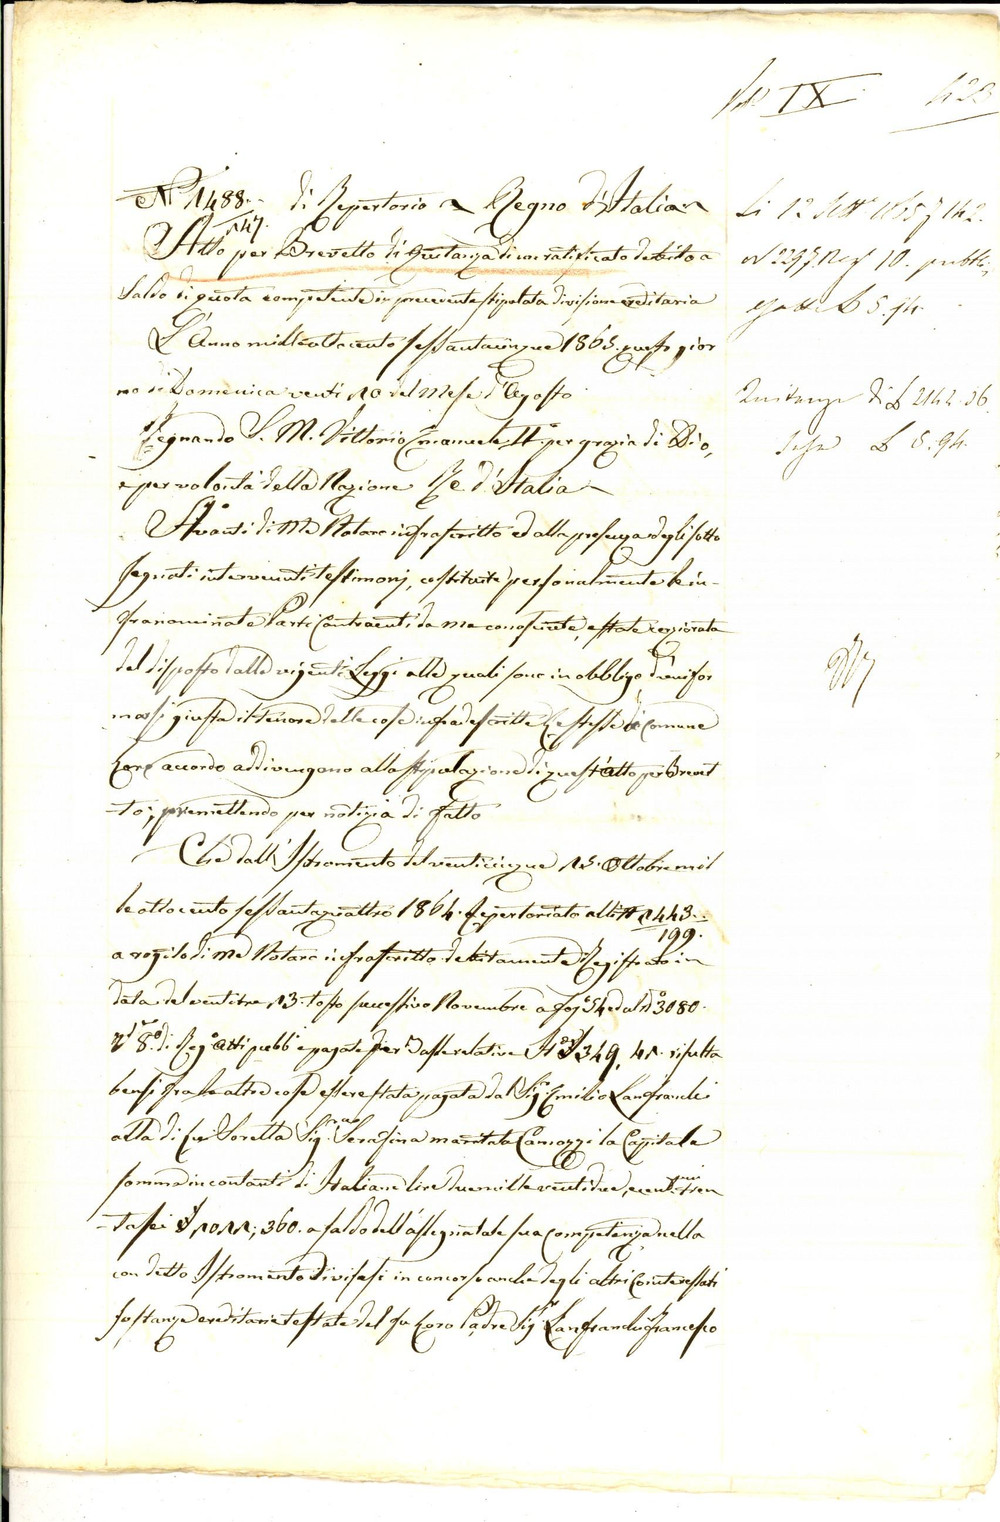 IX 423
N. 1488. di Repertorio Regno d'Italia
147.
Atto per Brevetto di Quitanza di con ratificato debito a
saldo di quota competente in precedente stipulata divisione ereditaria
L'Anno mille ottocento sessantacinque 1865. questo gior
no di Domenica venti 20 del Mese d'Agosto
Regnando S. M. Vittorio Emanuele II. per grazia di Dio,
e per volontà della Nazione Re d'Italia
Avanti di Me Notaro infrascritto ed alla presenza degli sotto
segnati intervenuti testimonj, costituite personalmente le in-
franominate Parti Contraenti da me conosciute,
del disposto dalle vigenti Leggi alle quali sono in obbligo d'unifor
marsi giusta il tenore delle cose infradescritte Le stesse di comune
loro accordo addivengono alla stipolazione di quest'atto per Brevet
-to; premettendo per notizia di fatto
Che dall'Istromento del venticinque 25. Ottobre mil
le ottocento sessantaquattro 1864. Repertoriato alli N 1443.
199.
a rogito di me Notaro infrascritto debitamente Registrato in
data del ventitre 23 tosto successivo Novembre a fog. 54 ed al N. 3080.
Vol. 8. di Reg. atti pubb. e pagate per Tasse relative 349, 41. risulta
bensì fra le altre cose essere stata pagata dal Sig. Emilio Lanfranchi
alla di lui Sorella Sig. Serafina maritata Camozzi la Capitale
somma in contanti di Italiane lire duemille ventidue, e cent. tren
-tasei 2022; 360. a saldo dell'assegnatale sua competenza nella
con detto Istromento divisasi in concorso anche degli altri Cointeressati
sostanze ereditarie testate del fu loro Padre Sig. Lanfranchi Francesco
Li 12 Sett. 1865 f 142.
N. 2297 Reg 10. pubb.
esatte L 5. 94.
Quitanza di L 2142. 56
Tassa L 5. 94.